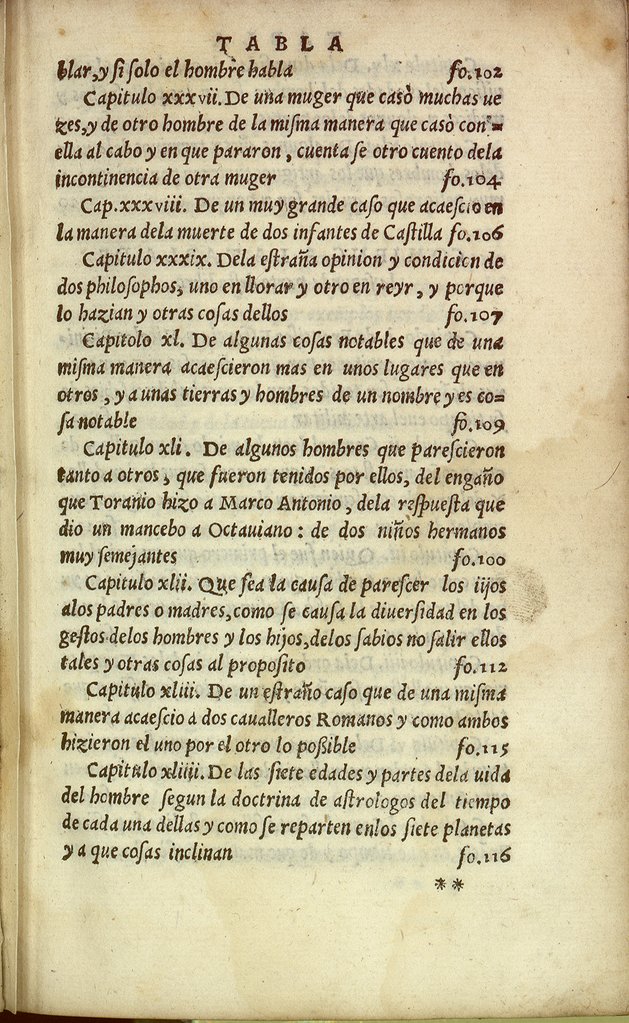 TABLA
blar, y ſi ſolo el hombre habla fo.102
Capitulo xxxvii. De una muger que casò muchas ue
zes, y de otro hombre de la miſma manera que casò con=
ella al cabo y en que pararon, cuenta ſe otro cuento dela
incontinencia de otra muger fo.104
Cap.xxxviii. De un muy grande caſo que acaeſcio en
la manera dela muerte de dos infantes de Caſtilla fo.106
Capitulo xxxix. Dela eſtraña opinion y condicion de
dos philoſophos, uno en llorar y otro en reyr, y porque
lo hazian y otras coſas dellos fo.107
Capitolo xl. De algunas coſas notables que de una
miſma manera acaeſcieron mas en unos lugares que en
otros, y a unas tierras y hombres de un nombre y es co=
ſa notable fo.109
Capitulo xli. De algunos hombres que pareſcieron
tanto a otros, que fueron tenidos por ellos, del engaño
que Toranio hizo a Marco Antonio, dela reſpueſta que
dio un mancebo a Octauiano: de dos niños hermanos
muy ſemejantes fo.100
Capitulo xlii. Que ſea la cauſa de pareſcer los iijos
alos padres o madres, como ſe cauſa la diuerſidad en los
geſtos delos hombres y los hijos, delos ſabios no ſalir ellos
tales y otras coſas al propoſito fo.112
Capitulo xliii. De un eſtraño caſo que de una miſma
manera acaeſcio à dos caualleros Romanos y como ambos
hizieron el uno por el otro lo poßible fo.115
Capitulo xliiii. De las ſiete edades y partes dela uida
del hombre ſegun la doctrina de aſtrologos del tiempo
de cada una dellas y como ſe reparten enlos ſiete planetas
y a que coſas inclinan fo.116
**